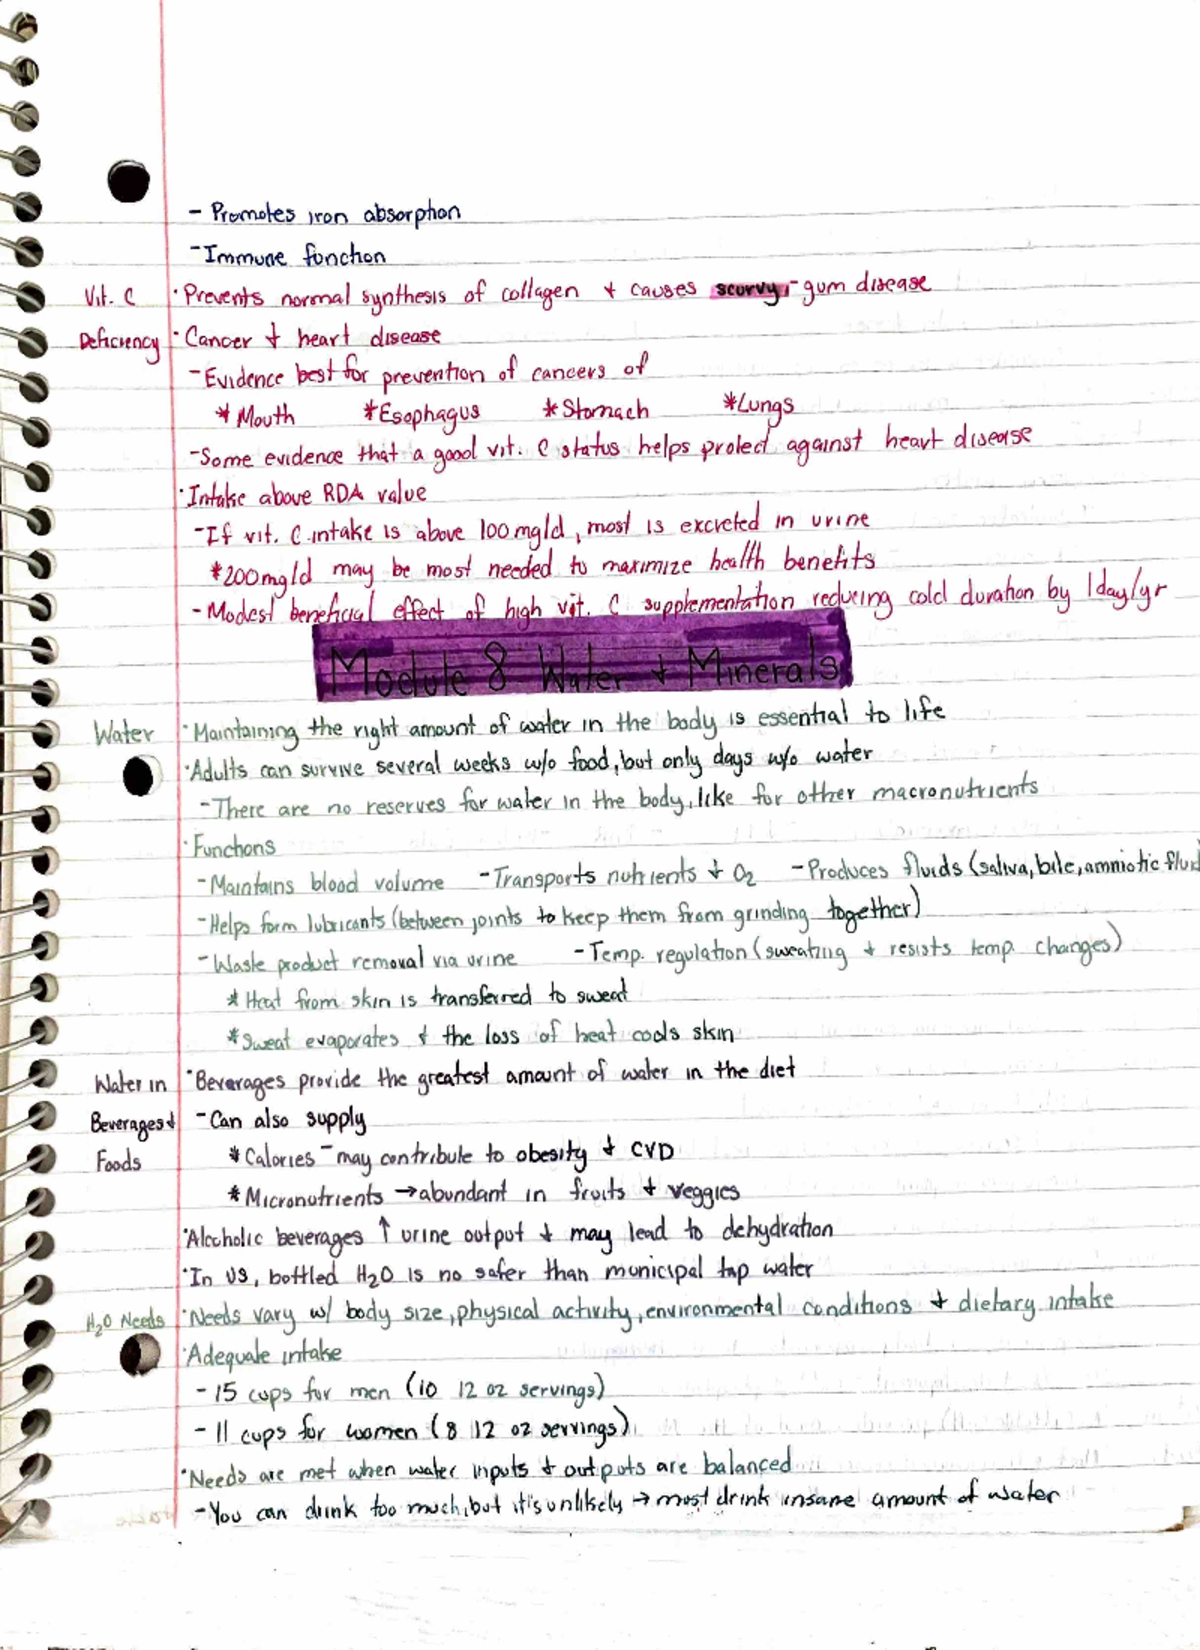 - Promotes iron absorption
- Immune function
Vit. C · Prevents normal synthesis of collagen + causes scurvy, - gum disease
Deficiency · Cancer + heart disease
- Evidence best for prevention of cancers of
* Mouth * Esophagus * Stomach * Lungs
- Some evidence that a good vit. C status helps protect against heart disease
· Intake above RDA value
- If vit. C intake is above 100mg/d, most is excreted in urine
* 200mg/d may be most needed to maximize health benefits
- Modest beneficial effect of high vit. C supplementation reducing cold duration by 1day/yr
Module 8: Water + Minerals
Water · Maintaining the right amount of water in the body is essential to life
· Adults can survive several weeks w/o food, but only days w/o water
- There are no reserves for water in the body, like for other macronutrients
· Functions
- Maintains blood volume - Transports nutrients + O2 - Produces fluids (saliva, bile, amniotic fluid
- Helps form lubricants (between joints to keep them from grinding together)
- Waste product removal via urine - Temp. regulation (sweating + resists temp. changes)
* Heat from skin is transferred to sweat
* Sweat evaporates + the loss of heat cools skin
Water in · Beverages provide the greatest amount of water in the diet
Beverages + - Can also supply
Foods * Calories - may contribute to obesity + CVD
* Micronutrients → abundant in fruits + veggies
· Alcoholic beverages ↑ urine output + may lead to dehydration
· In US, bottled H2O is no safer than municipal tap water
H2O Needs · Needs vary w/ body size, physical activity, environmental conditions + dietary intake
· Adequate intake
- 15 cups for men (10 12 oz servings)
- 11 cups for women (8 12 oz servings)
· Needs are met when water inputs + outputs are balanced
- You can drink too much, but it's unlikely → must drink insane amount of water